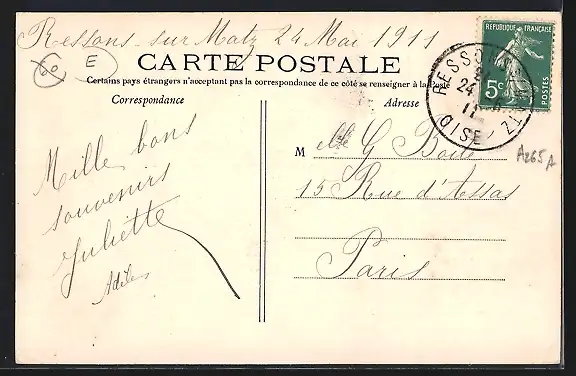 Ressons sur Matz 24 Mai 1911
60 E
CARTE POSTALE
Certains pays étrangers n'acceptant pas la correspondance de ce côté se renseigner à la Poste
Correspondance
Adresse
REPUBLIQUE FRANÇAISE
5c
POSTES
RESSONS
24
11
OISE
A265A
Mille bons
souvenirs
Juliette
M elle G
15 Rue d'Assas
Paris